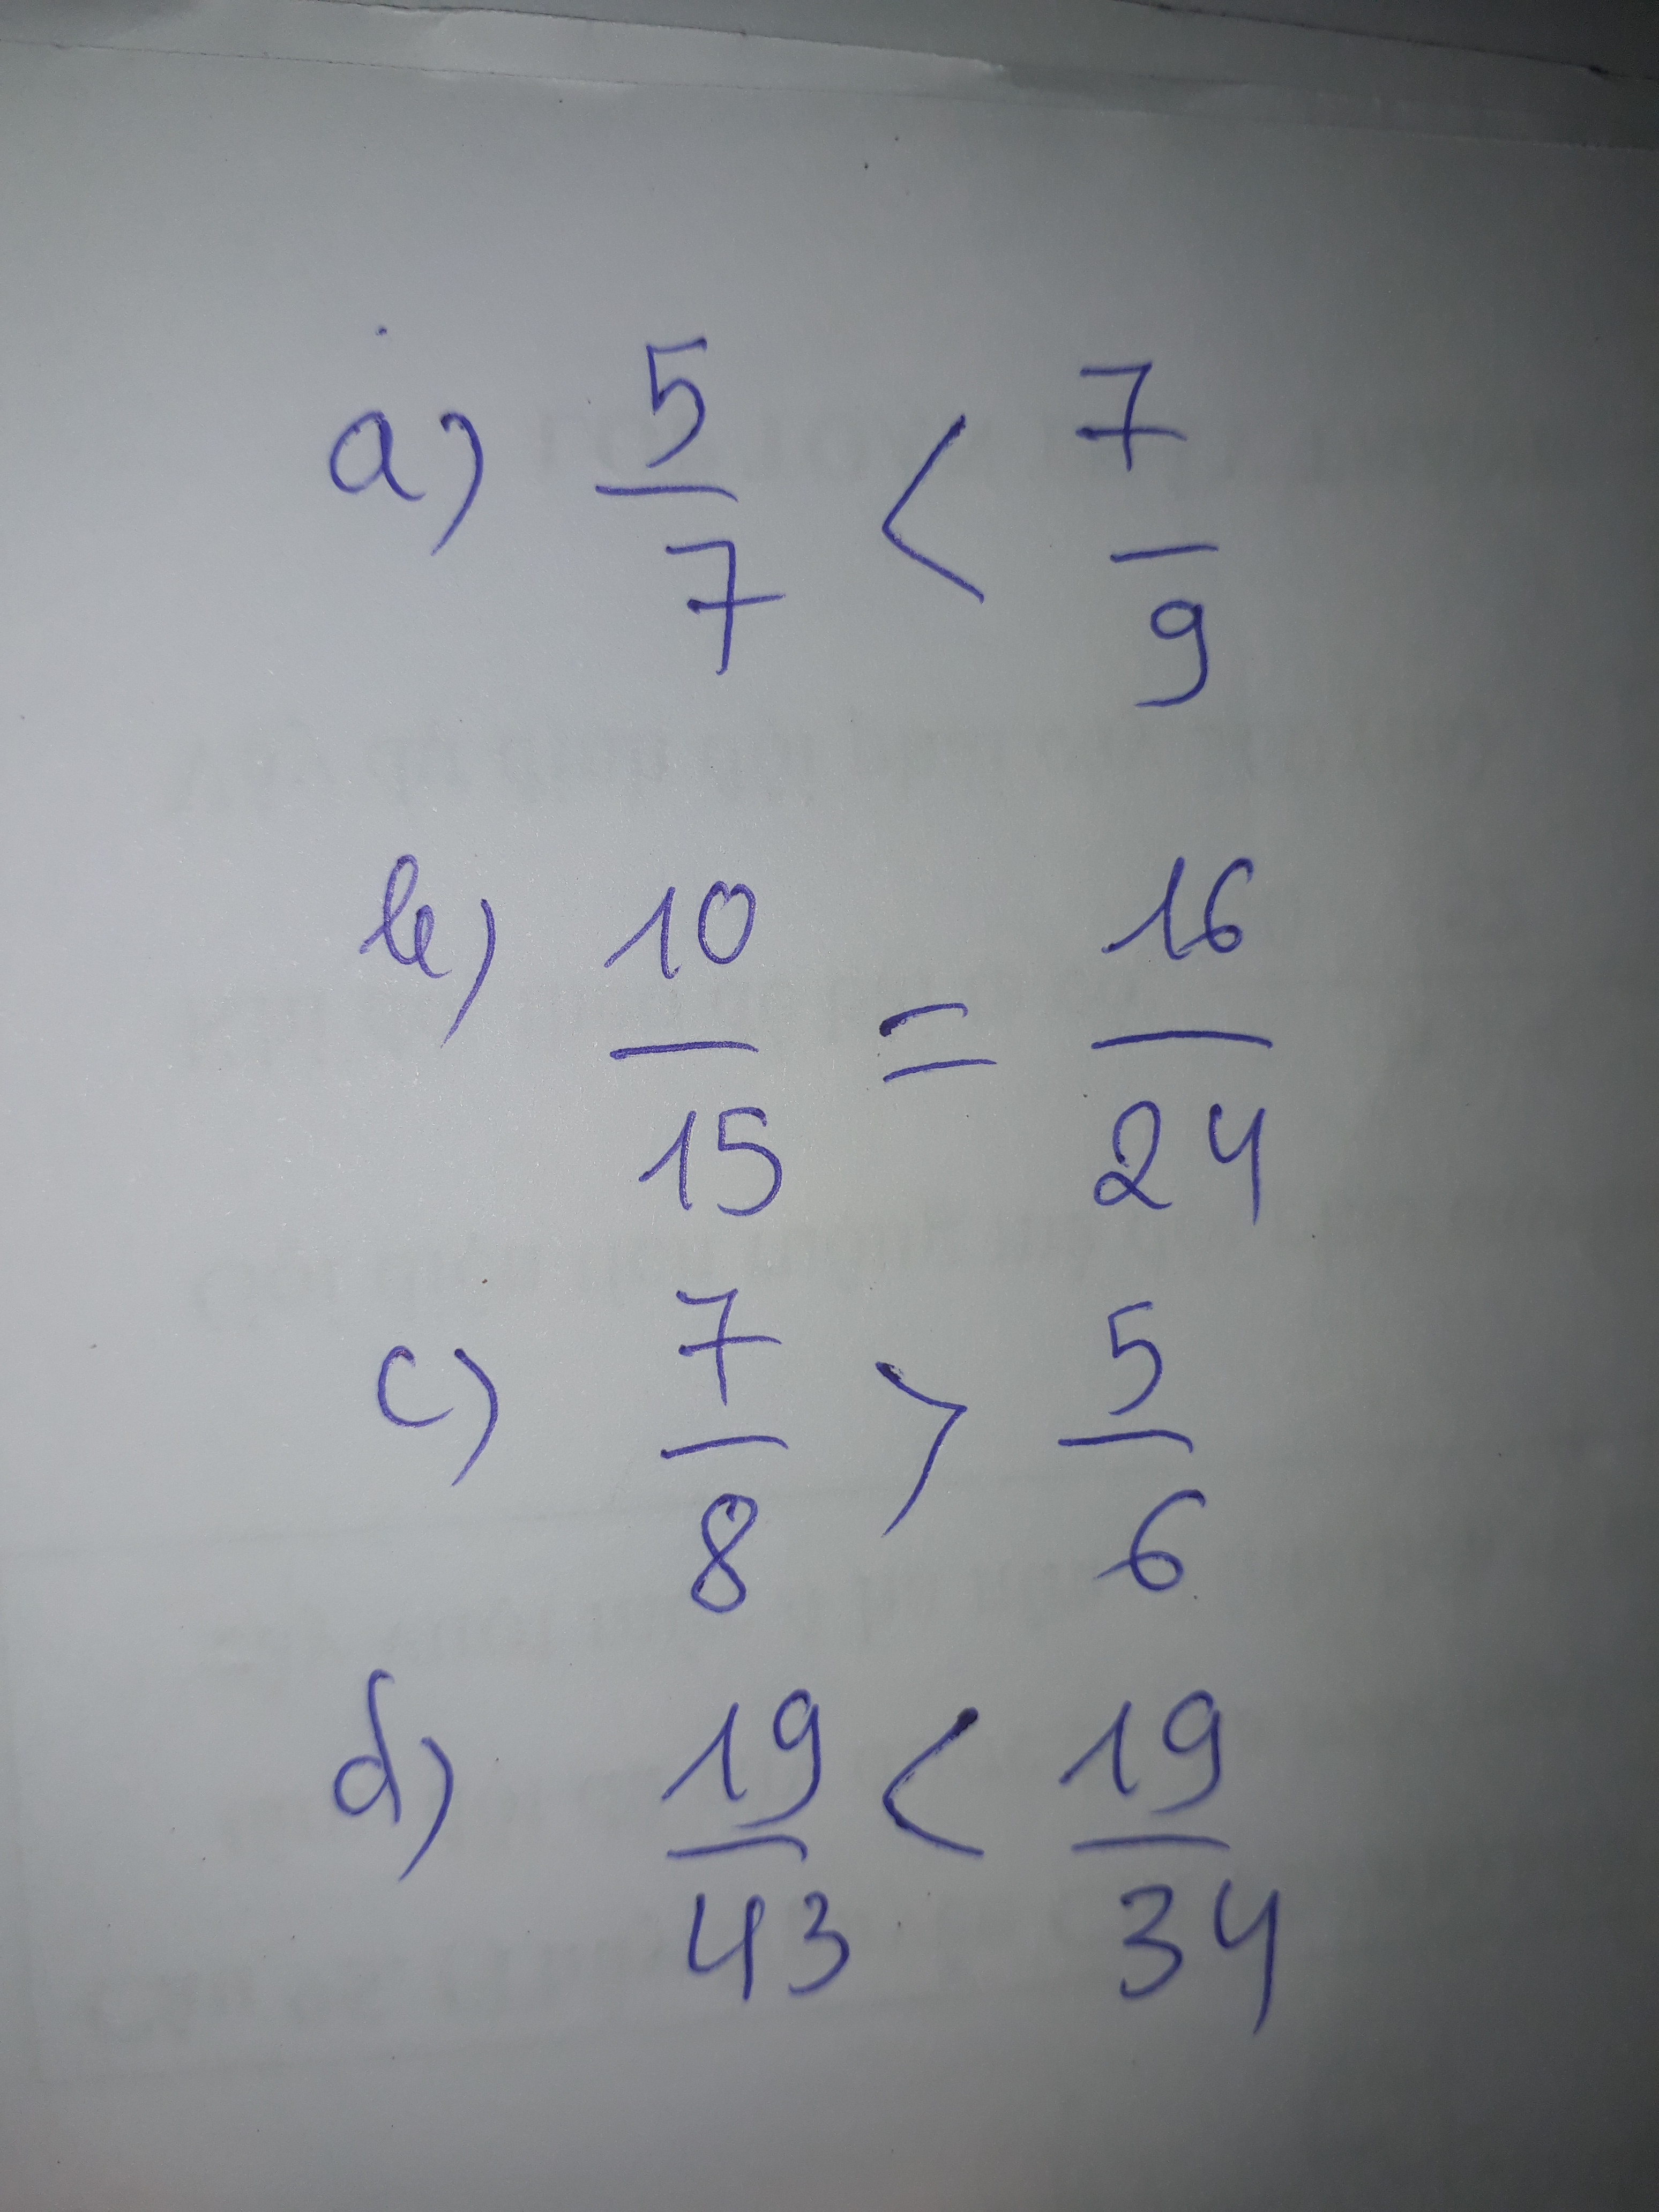 a) 5/7 < 7/9
b) 10/15 = 16/24
c) 7/8 > 5/6
d) 19/43 < 19/34